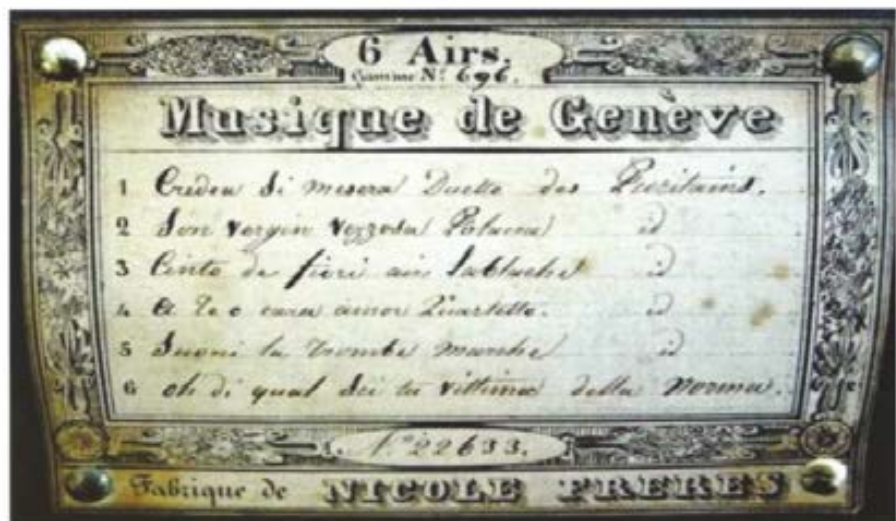 6 Airs.
Gamme No. 696.
Musique de Genève
1 Credea si misera Duetto des Puritains.
2 Son vergin vezzosa Polacca id
3 Cinta de fiori air Lablache id
4 A te o cara amor Quartetto. id
5 Suoni la trombe marche id
6 oh di qual sei tu vittima della Norma.
No. 22633.
Fabrique de NICOLE FRERES